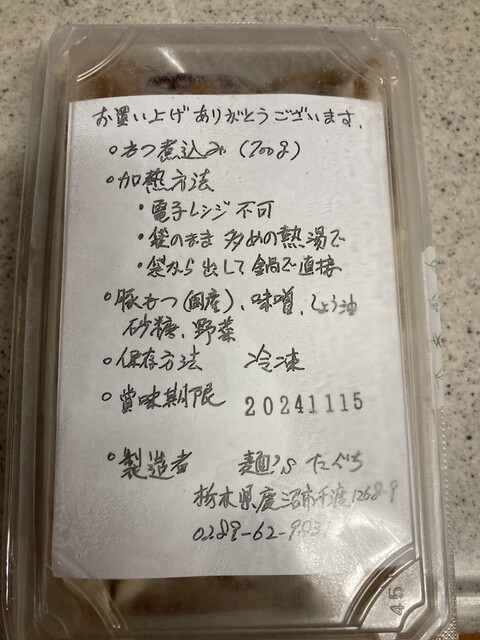 お買い上げありがとうございます.
○もつ煮込み(200g)
○加熱方法
・電子レンジ 不可
・袋のまま 多めの熱湯で
・袋から出して鍋で直接
○豚もつ(国産)、味噌、しょう油
砂糖、野菜
○保存方法 冷凍
○賞味期限 20241115
○製造者 麺's たぐち
栃木県鹿沼市千渡1268-9
0289-62-983
45